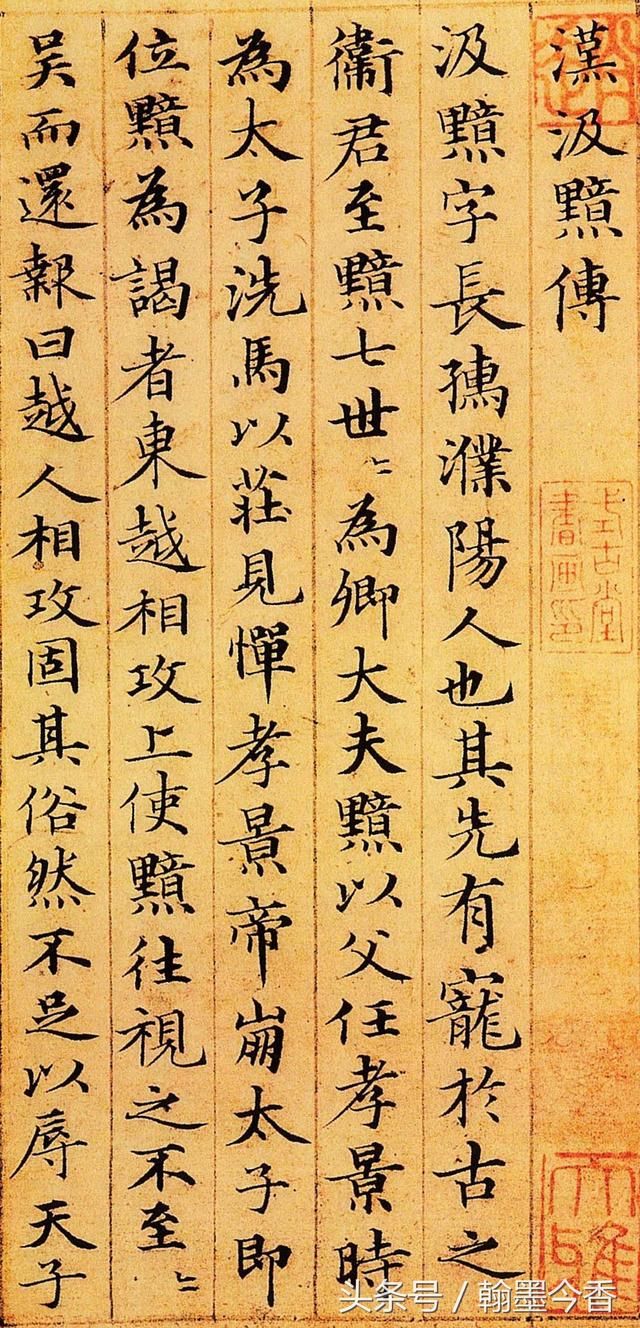 漢汲黯傳
汲黯字長孺濮陽人也其先有寵於古之
衛君至黯七世〻為卿大夫黯以父任孝景時
為太子洗馬以莊見憚孝景帝崩太子即
位黯為謁者東越相攻上使黯往視之不至〻
吴而還報曰越人相攻固其俗然不足以辱天子
式古堂
書畫印
头条号 / 翰墨今香